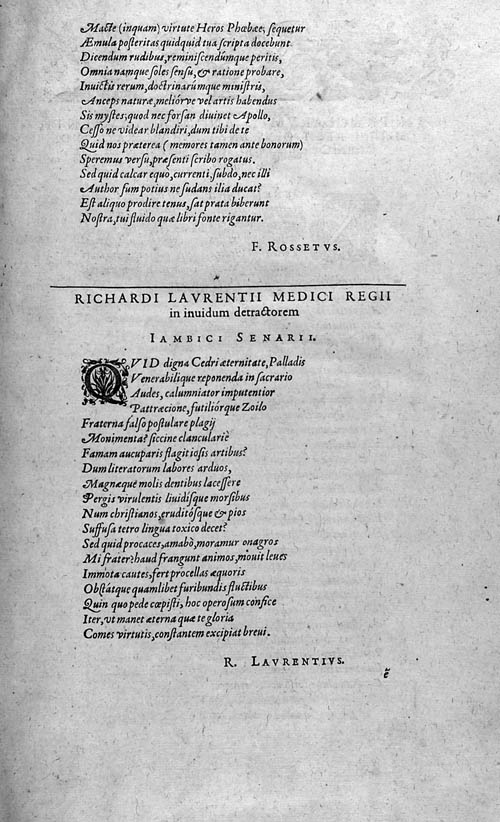 Macte (inquam) virtute Heros Phœbæe, sequetur
Æmula posteritas quidquid tua scripta docebunt.
Dicendum rudibus, reminiscendumque peritis,
Omnia namque soles sensu, & ratione probare,
Inuictis rerum, doctrinarúmque ministris,
Anceps naturæ, meliórve vel artis habendus
Sis mystes, quod nec forsan diuinet Apollo,
Cesso ne videar blandiri, dum tibi de te
Quid nos præterea (memores tamen ante bonorum)
Speremus versu, præsenti scribo rogatus.
Sed quid calcar equo, currenti, subdo, nec illi
Author sum potius ne sudans ilia ducat?
Est aliquo prodire tenus, sat prata biberunt
Nostra, tui fluido quæ libri fonte rigantur.
F. ROSSETVS.
RICHARDI LAVRENTII MEDICI REGII
in inuidum detractorem
IAMBICI SENARII.
QVID digna Cedri æternitate, Palladis
Venerabilique reponenda in sacrario
Audes, calumniator imputentior
Pattræcione, futiliórque Zoilo
Fraterna falso postulare plagij
Monimenta? siccine clanculariè
Famam aucuparis flagitiosis artibus?
Dum literatorum labores arduos,
Magnæque molis dentibus lacessere
Pergis virulentis liuidisque morsibus
Num christianos, eruditósque & pios
Suffusa tetro lingua toxico decet?
Sed quid procaces, amabò, moramur onagros
Mi frater? haud frangunt animos, mouit leues
Immota cautes, fert procellas æquoris
Obstátque quamlibet furibundis fluctibus
Quin quo pede cœpisti, hoc operosum confice
Iter, vt manet æterna quæ te gloria
Comes virtutis, constantem excipiat breui.
R. LAVRENTIVS.
ẽ